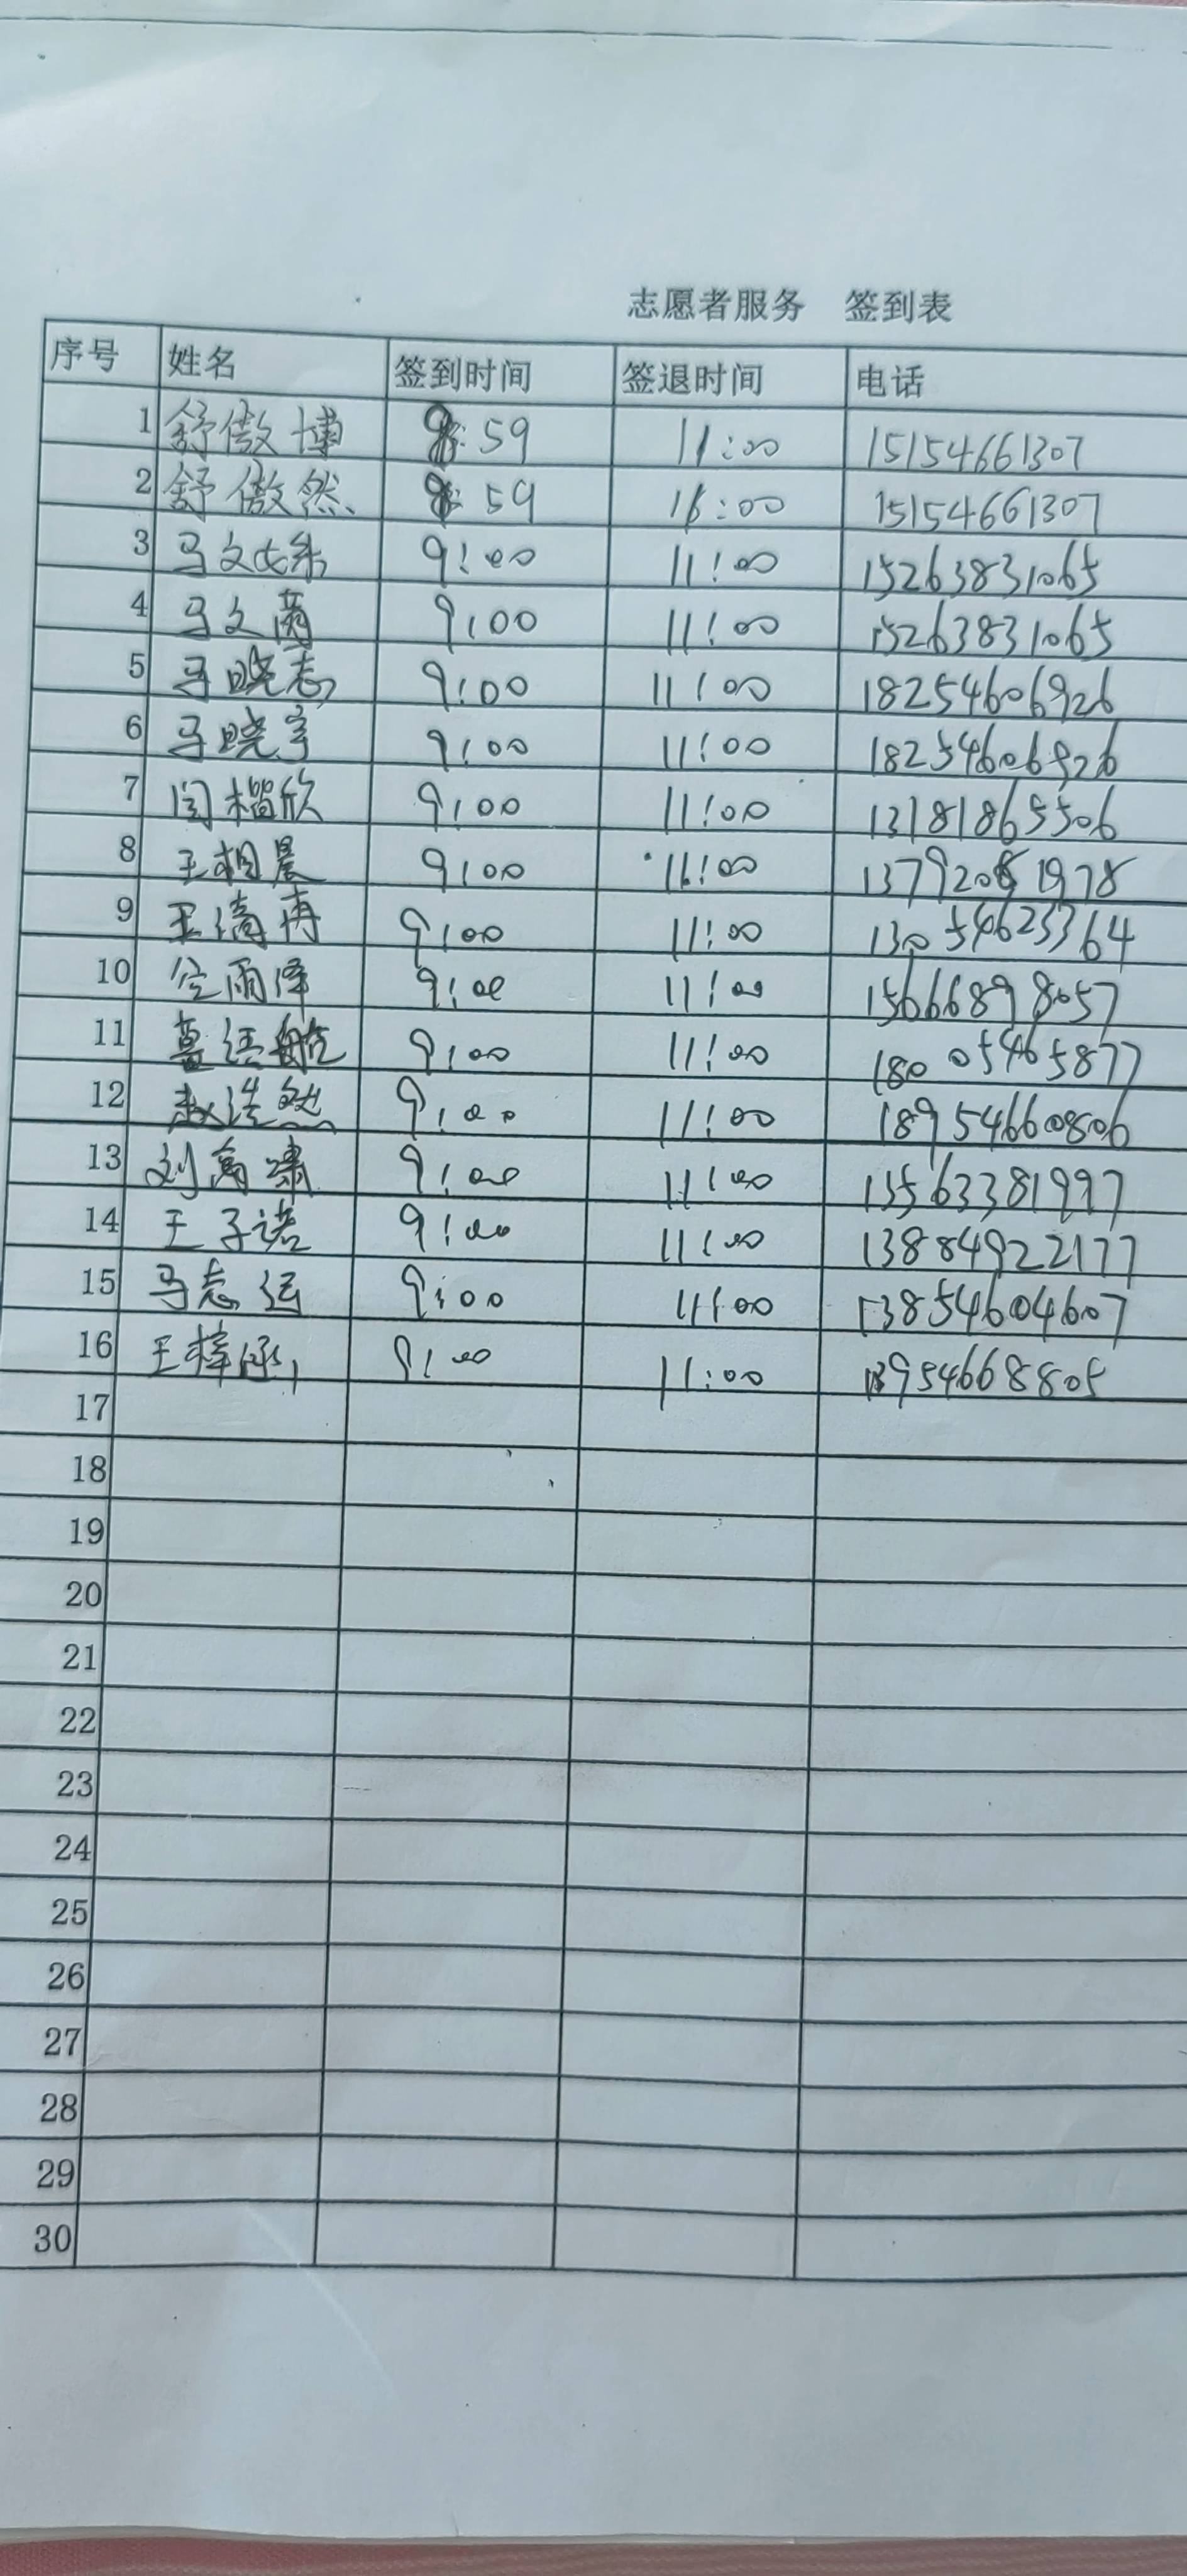 志愿者服务 签到表
序号 姓名 签到时间 签退时间 电话
1 舒傲博 8:59 11:00 15154661307
2 舒傲然 8:59 11:00 15154661307
3 马文 9:00 11:00 15263831065
4 马文茜 9:00 11:00 15263831065
5 马晓志 9:00 11:00 18254606926
6 马晓宇 9:00 11:00 18254606926
7 闫楷欣 9:00 11:00 13181865506
8 王相晨 9:00 11:00 13792081978
9 王 9:00 11:00 13054623364
10 雨泽 9:00 11:00 15666898057
11 语航 9:00 11:00 18005465877
12 赵浩然 9:00 11:00 18954660806
13 刘高啸 9:00 11:00 13563381997
14 王子诺 9:00 11:00 13884922177
15 马志远 9:00 11:00 13854604607
16 王梓丞 9:00 11:00 13954668805
17
18
19
20
21
22
23
24
25
26
27
28
29
30